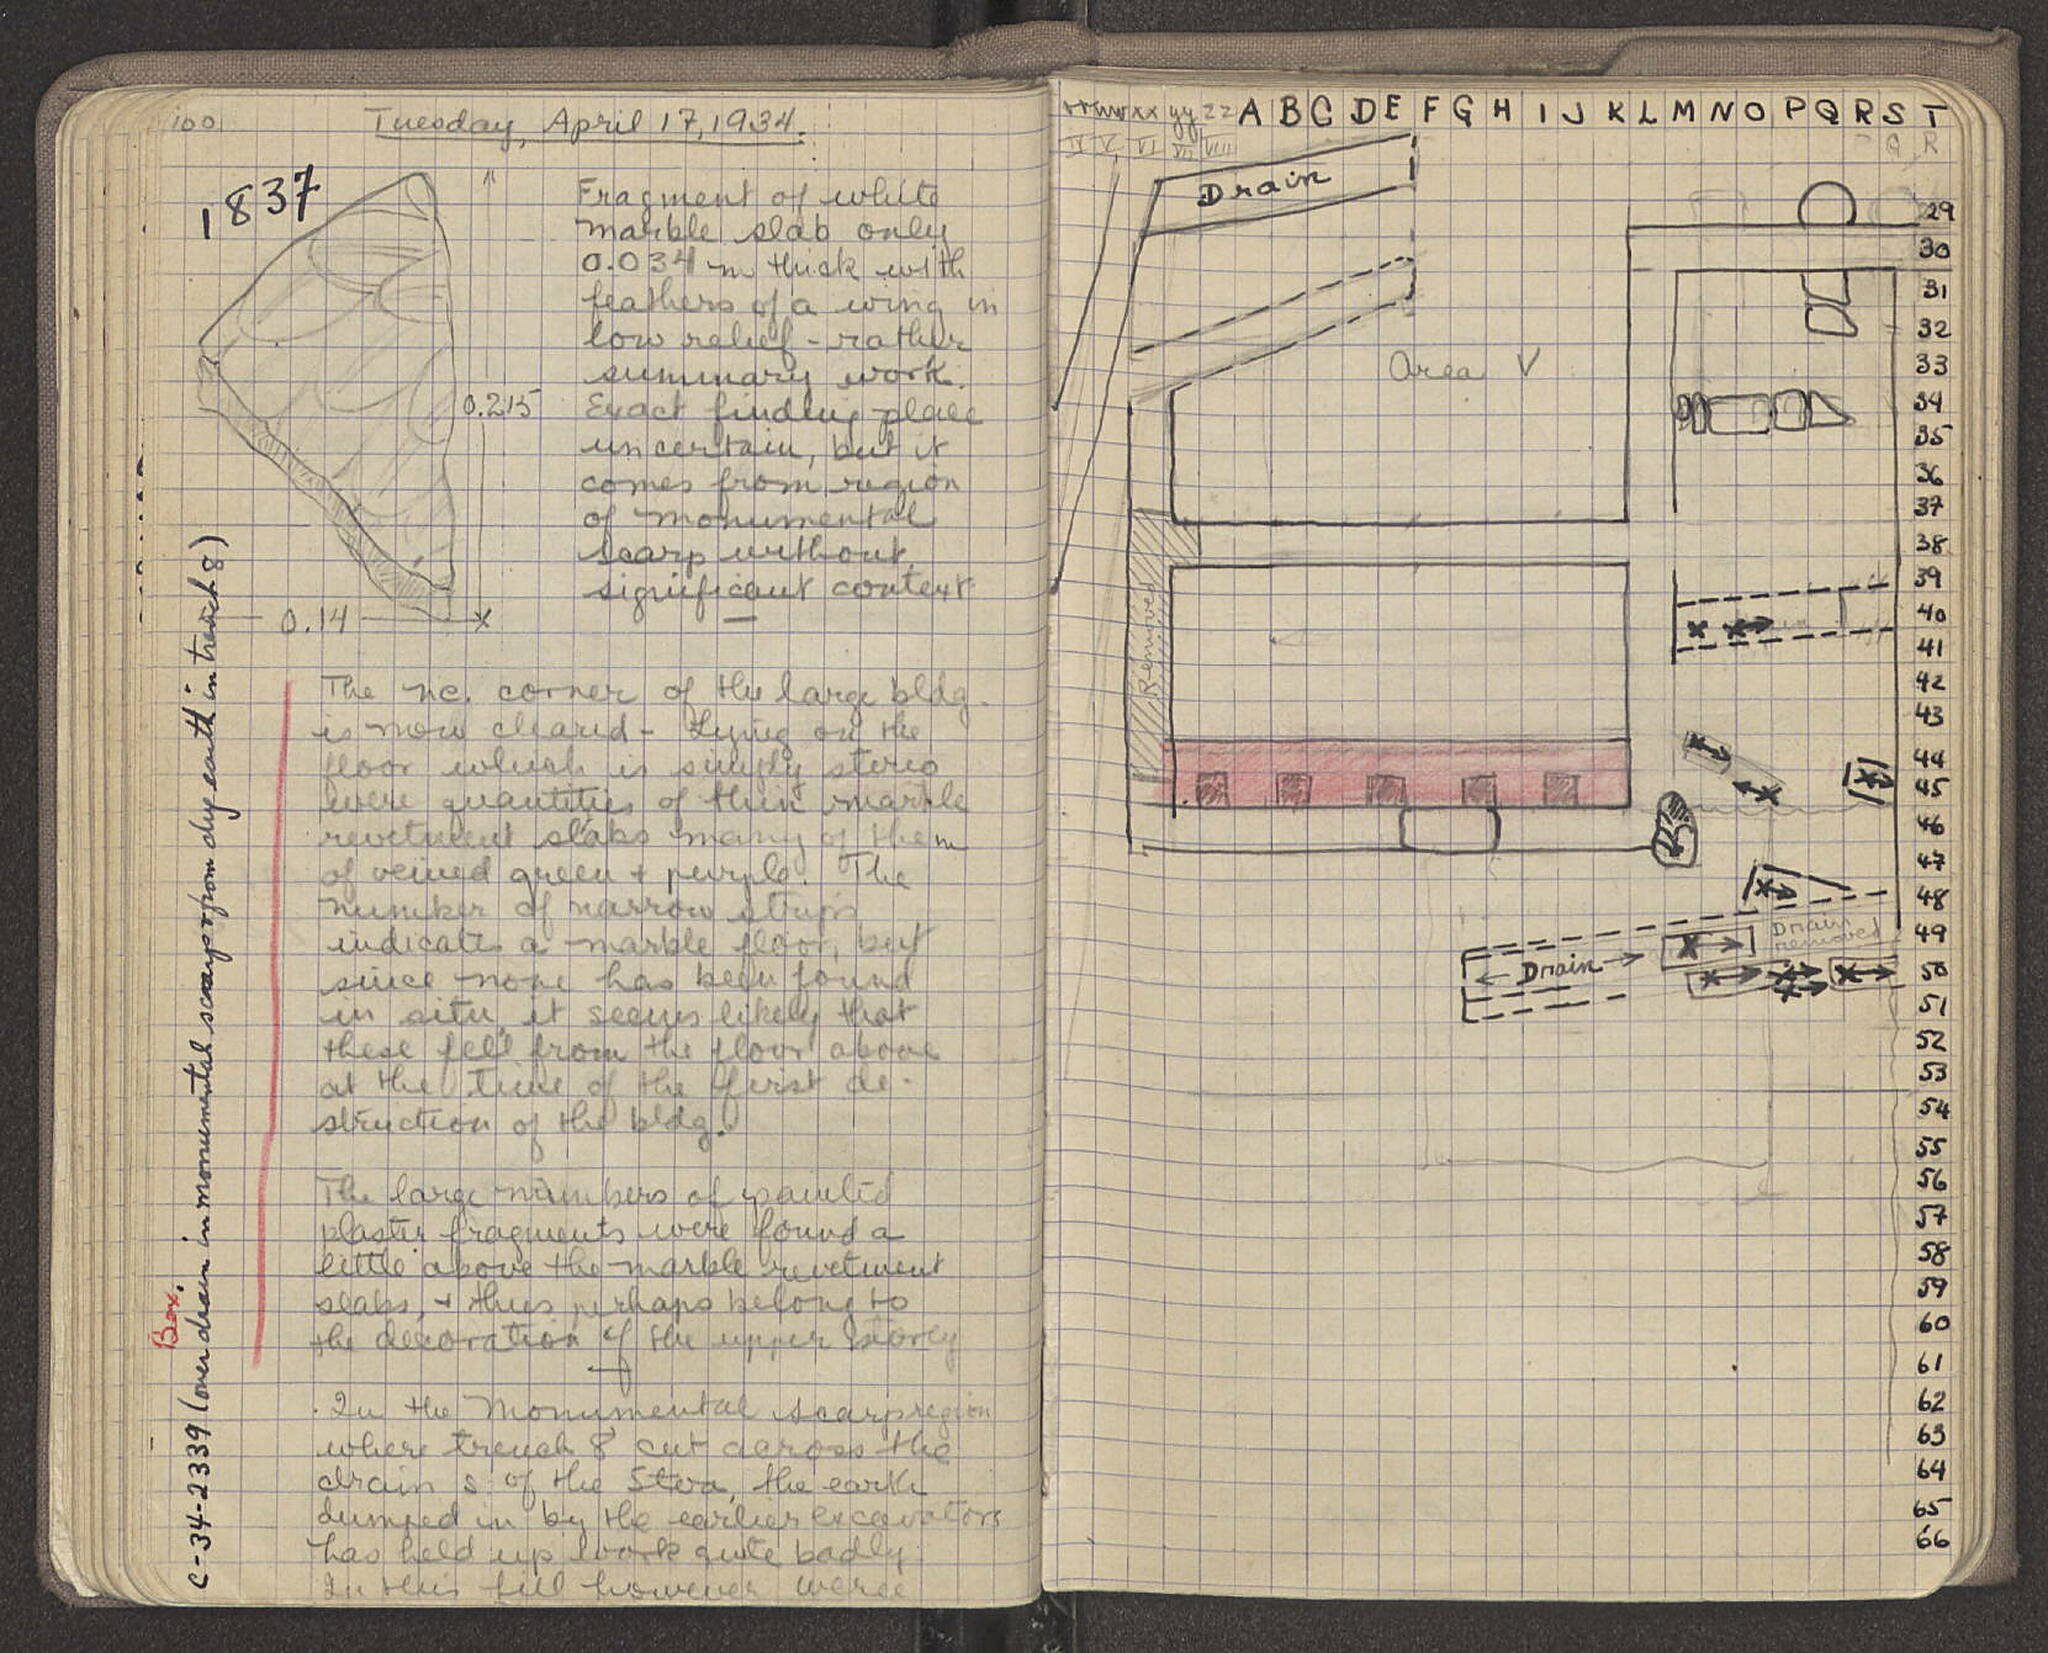 100
Tuesday, April 17, 1934.
1837
Fragment of white
marble slab only
0.034 m thick with
feathers of a wing in
low relief - rather
summary work.
Exact finding place
uncertain, but it
comes from region
of monumental
scarp without
significant context
0.215
0.14
The ne. corner of the large bldg.
is now cleared - Lying on the
floor which is simply stereo
were quantities of thin marble
revetment slabs many of them
of veined green + purple. The
number of narrow strips
indicates a marble floor, but
since none has been found
in situ, it seems likely that
these fell from the floor above
at the time of the first de-
struction of the bldg.
The large numbers of painted
plaster fragments were found a
little above the marble revetment
slabs, + thus perhaps belong to
the decoration of the upper storey
In the Monumental scarp region
where trench 8 cut across the
drain s of the Stoa, the earth
dumped in by the earlier excavators
has held up work quite badly
In this fill however were
Box.
C-34-2339 (over drain in monumental scarp from dry earth in trench 8)
xx yy zz A B C D E F G H I J K L M N O P Q R S T
IV V VI VII VIII Q R
Drain
Area V
Removed
Drain removed
Drain
29
30
31
32
33
34
35
36
37
38
39
40
41
42
43
44
45
46
47
48
49
50
51
52
53
54
55
56
57
58
59
60
61
62
63
64
65
66